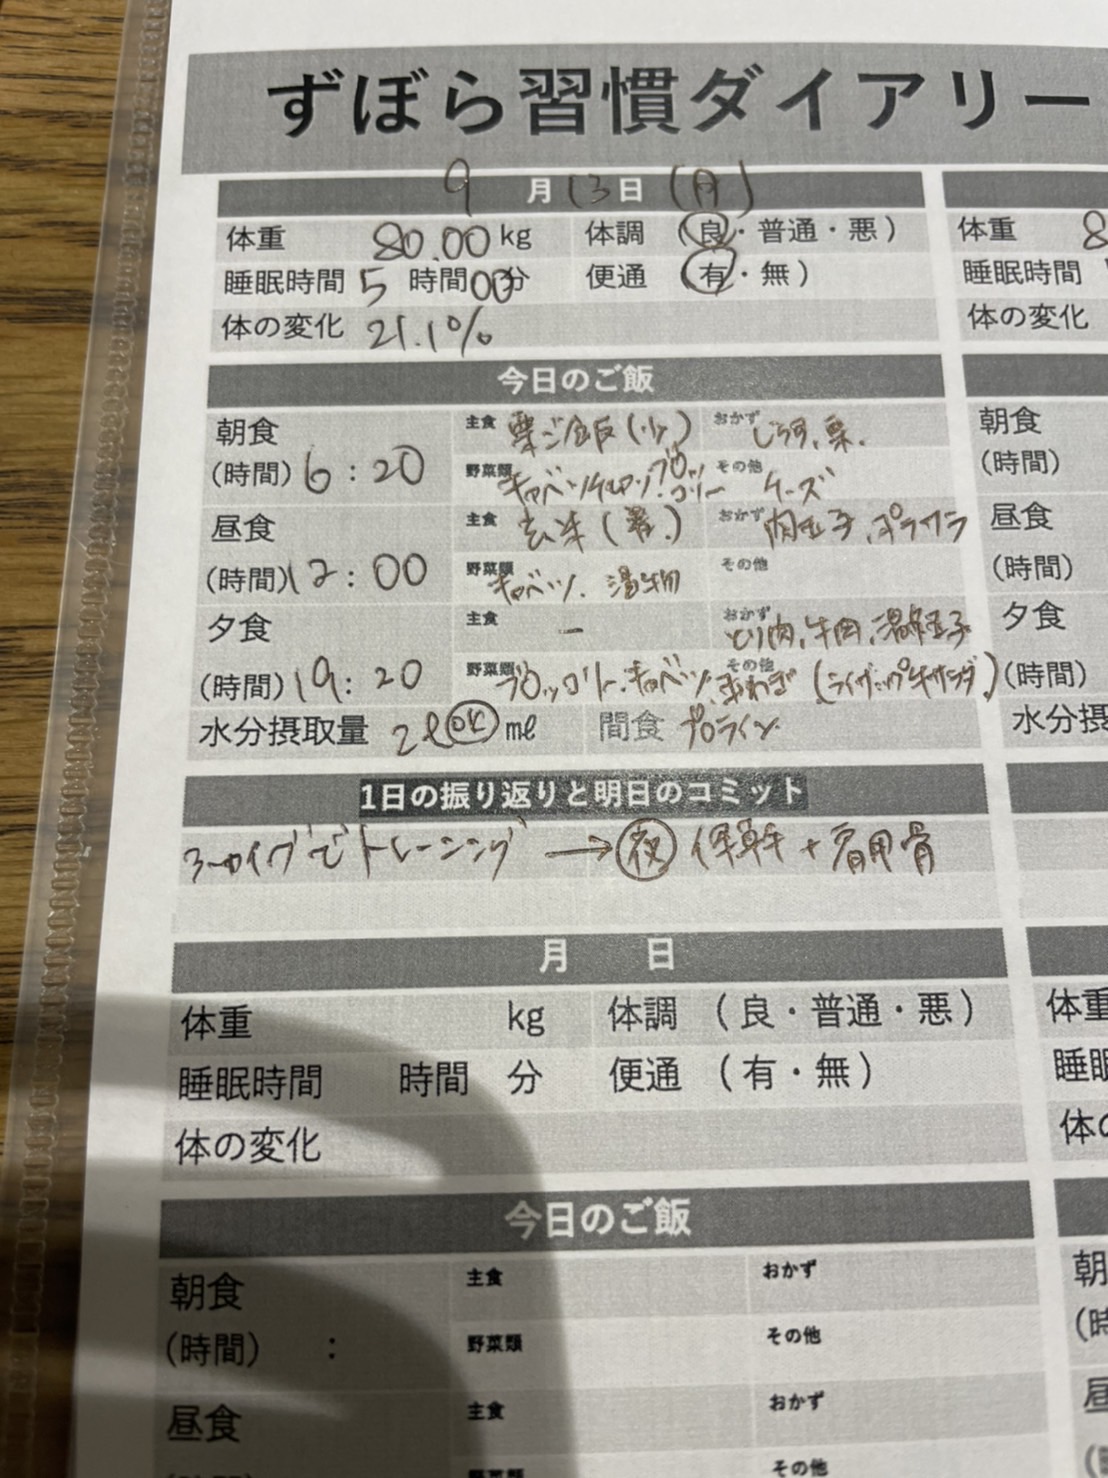 ずぼら習慣ダイアリー
9月13日(月)
体重 80.00kg 体調 (良・普通・悪) 体重 8
睡眠時間 5時間00分 便通 (有・無) 睡眠時間
体の変化 21.1% 体の変化
今日のご飯
朝食 主食 栗ご飯(少) おかず 栗. 朝食
(時間) 6:20 野菜類 キャベツ ブロッコリー その他 チーズ (時間)
昼食 主食 玄米 おかず 肉 昼食
(時間) 12:00 野菜類 キャベツ. その他 (時間)
夕食 主食 ー おかず とり肉,牛肉, 夕食
(時間) 19:20 野菜類 ブロッコリー.キャベツ. その他 (時間)
水分摂取量 2ℓ OK ㎖ 間食 水分摂
1日の振り返りと明日のコミット
でトレーニング → 夜 + 肩甲骨
月 日
体重 kg 体調 (良・普通・悪) 体重
睡眠時間 時間 分 便通 (有・無) 睡眠
体の変化 体の
今日のご飯
朝食 主食 おかず 朝
(時間) : 野菜類 その他 (時
昼食 主食 おかず 昼
野菜類 その他